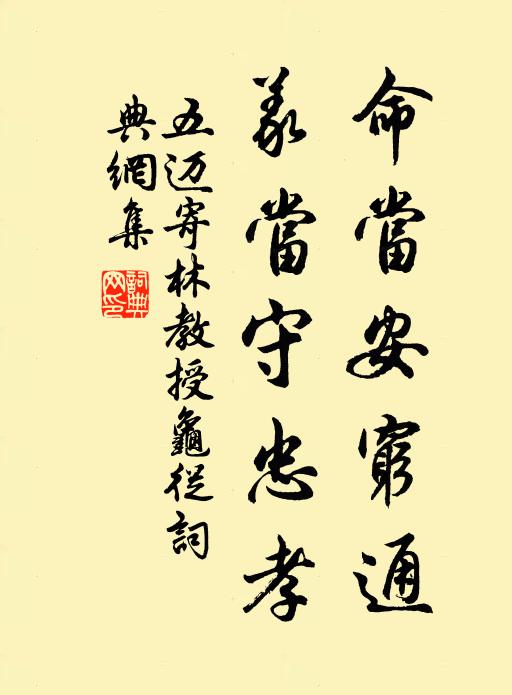 命當安窮通
義當守忠孝
五迈寄林教授龜從詞
典網集
詞典网印